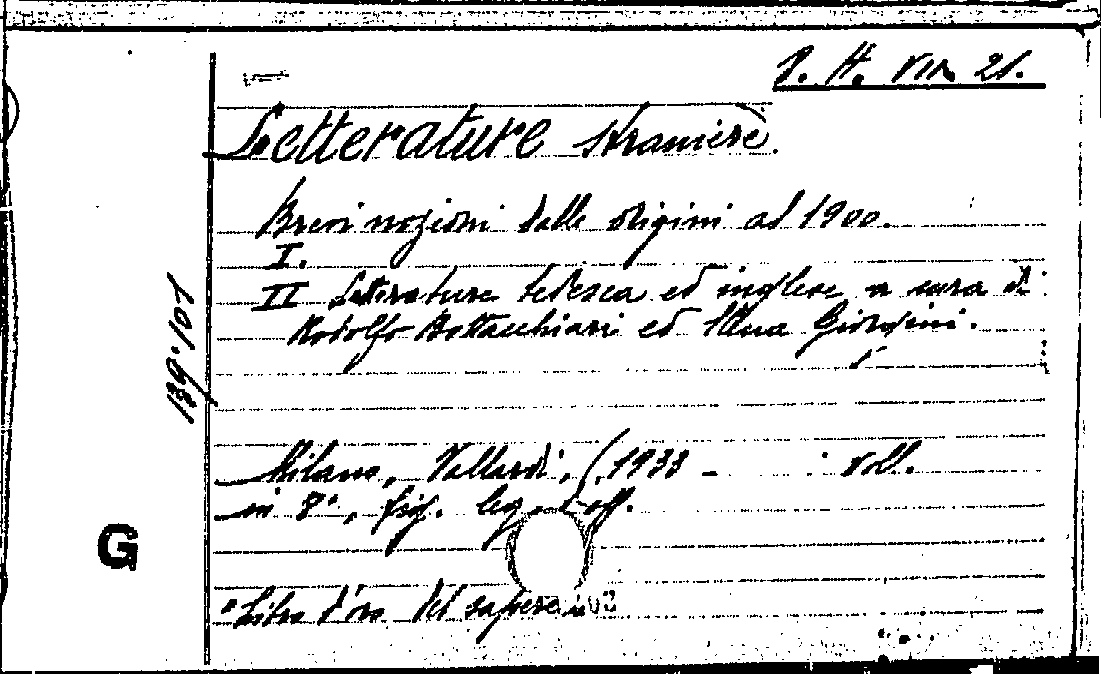 I. H. VIII. 21.
Letterature straniere.
Brevi nozioni dalle origini al 1900.
I.
II Letterature tedesca ed inglese a cura di
Rodolfo Bottacchiari ed Alina Giorgini.
139'101
Milano, Vallardi, (1933 - voll.
in 8°, fig. leg. t-off.
G
"Libro d'oro del sapere